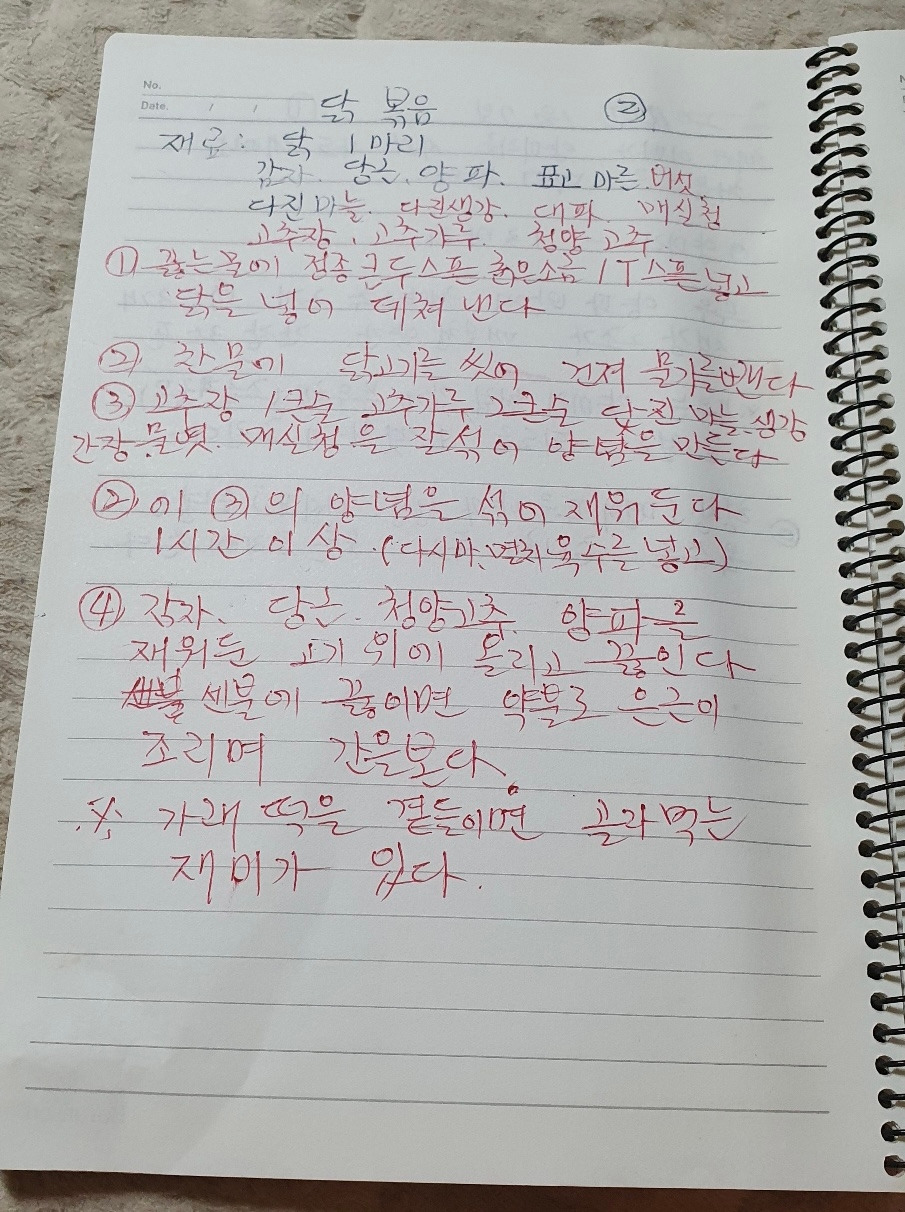 No.
Date. / /
닭 볶음 ②
재료: 닭 1마리
감자. 당근. 양파. 표고 마른 버섯
다진마늘. 다진생강. 대파. 매실청
고추장. 고추가루. 청양 고추.
① 끓는물에 정종 큰두스픈 굵은소금 1T스픈넣고
닭을 넣어 데쳐 낸다
② 찬물에 닭고기를 씻어 건져 물기를뺀다
③ 고추장 1큰술 고추가루 2큰술 닺진 마늘.생강
간장.물엿. 매실청을 잘섞어 양념을 만든다
②에 ③의 양념을 섞어 재워둔다
1시간 이상. (다시마,멸치육수를 넣고)
④ 감자. 당근. 청양고추. 양파를
재워둔 고기 위에 올리고 끓인다
센불에 끓이면 약불로 은근이
조리며 간을본다.
※ 가래 떡을 곁들이면 골라먹는
재미가 있다.